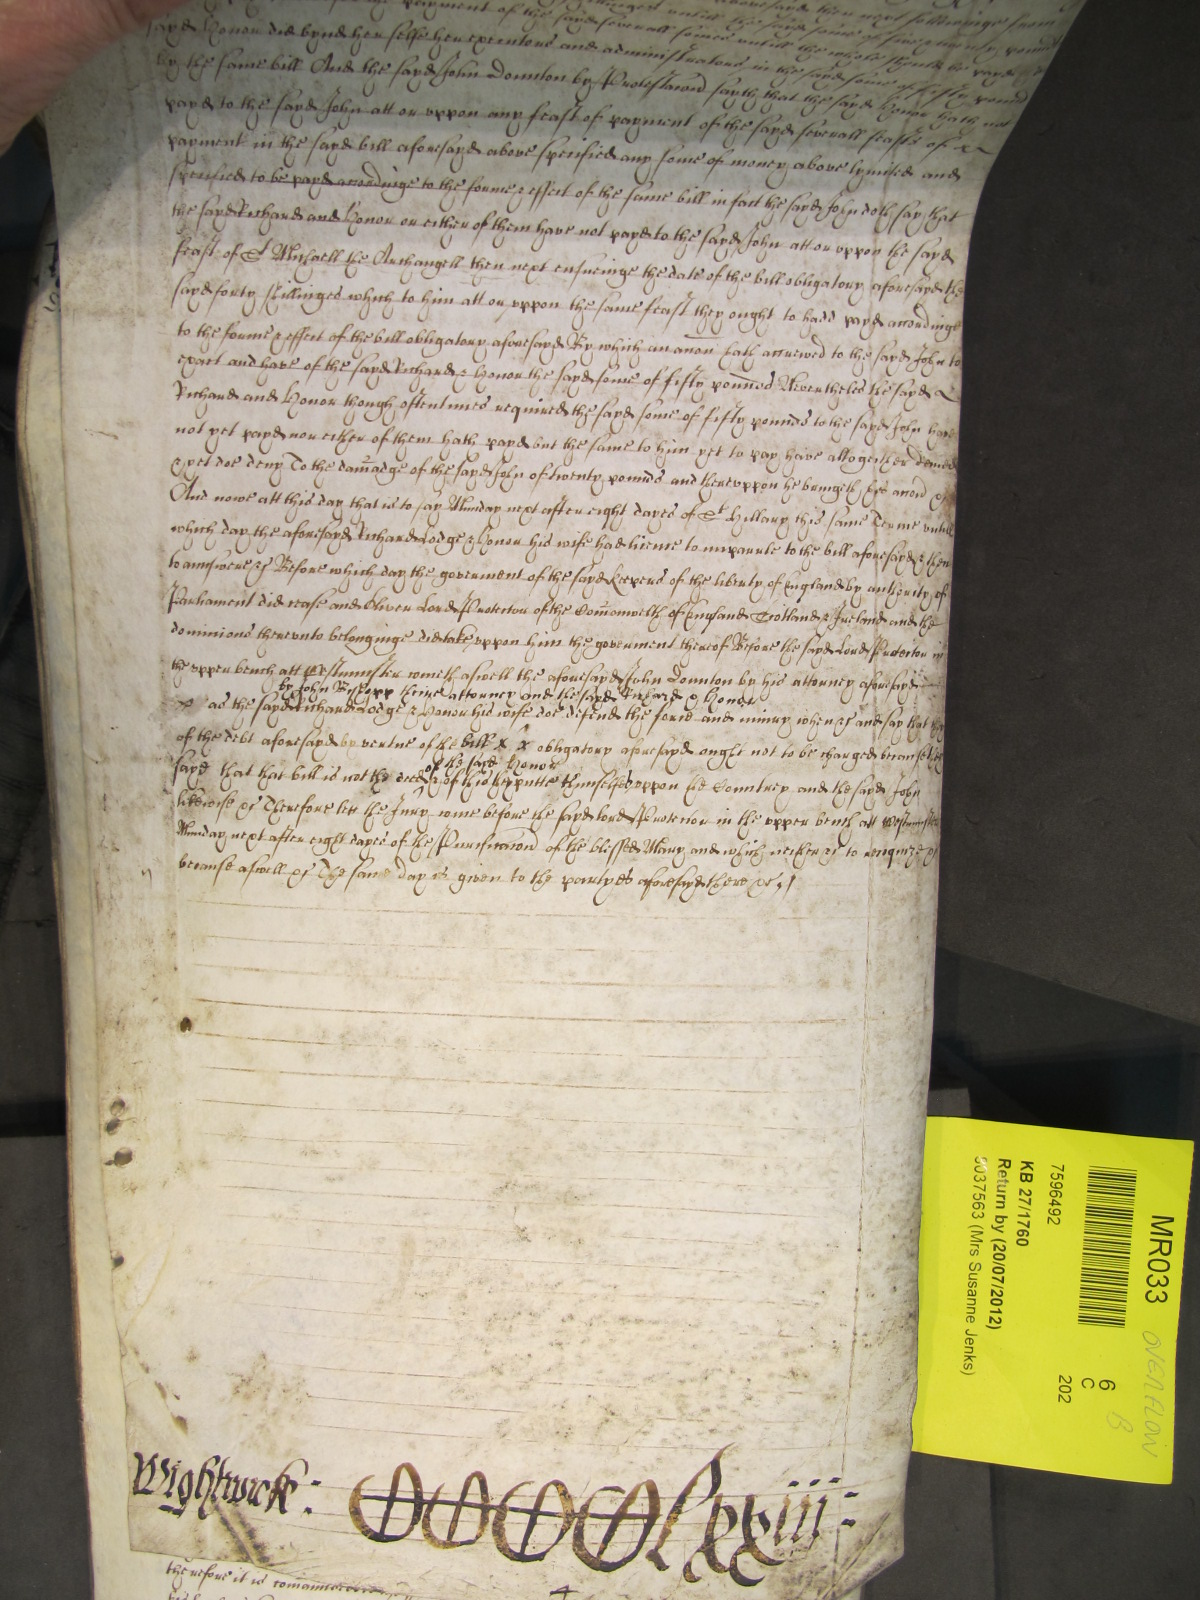 payment of the sayd severall somes untill the whole should be payd
sayd Honor did bynd her selfe her executors and administrators in the sayd some of fifty pounds
by the same bill And the sayd John Dounton by Protestacon sayth that the sayd Honor hath not
payd to the sayd John att or uppon any feast of payment of the sayd severall feasts of
payment in the sayd bill aforesayd above specified any some of money above lymited and
specified to be payd accordinge to the forme & effect of the same bill in fact the sayd John doth say that
the sayd Richard and Honor or either of them have not payd to the sayd John att or uppon the sayd
feast of St Michaell the Archangell then next ensueinge the date of the bill obligatory aforesayd the
sayd forty shillinges which to him att or uppon the same feast they ought to have payd accordinge
to the forme & effect of the bill obligatory aforesayd By which an accon hath accrewed to the sayd John to
exact and have of the sayd Richard & Honor the sayd some of fifty pounds Nevertheles the sayd
Richard and Honor though oftentimes required the sayd some of fifty pounds to the sayd John have
not yet payd nor either of them hath payd but the same to him yet to pay have altogether denied
& yet doe deny To the damadge of the sayd John of twenty pounds and thereuppon he bringeth his accon &c
And nowe att this day that is to say Munday next after eight dayes of St Hillary this same Terme untill
which day the aforesayd Richard Lodge & Honor his wife had licence to imparle to the bill aforesayd & then
to answere &c Before which day the goverment of the sayd keepers of the liberty of England by authority of
Parliament did cease and Oliver Lord Protector of the Comonwelth of England Scotland & Ireland and the
dominions thereunto belonginge did take uppon him the goverment thereof Before the sayd Lord Protector in
the upper bench att Westminster cometh aswell the aforesayd John Dounton by his attorney aforesayd
by John Bishopp theire attorney and the sayd Richard & Honor
as the sayd Richard Lodge & Honor his wife doe defend the force and iniury when &c and say that they
of the debt aforesayd by vertue of the bill x x obligatory aforesayd ought not to be charged because they
of the sayd Honor
say that that bill is not the deed & of this they putte themselfes uppon the Countrey and the sayd John
likewise &c Therefore lett the Jury come before the sayd lord Protector in the upper bench att Westminster
Munday next after eight dayes of the Purificacon of the blessed Mary and which neither &c to recognize &c
because aswell &c The same day is given to the partyes aforesayd there &c
Wightwick : CCCClxxiii :
therefore it is comanded
MR033
OVERFLOW
B
6
C
202
7596492
KB 27/1760
Return by (20/07/2012)
9037563 (Mrs Susanne Jenks)